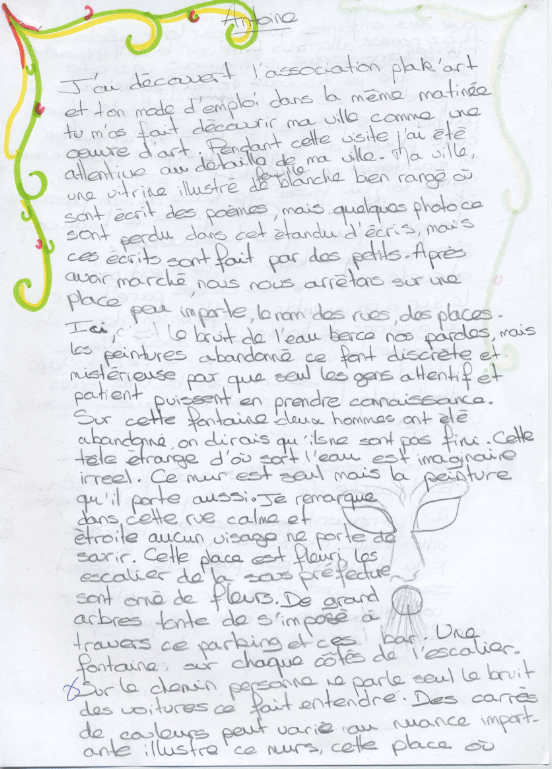 Antoine
J'ai découvert l'association plak'art
et ton mode d'emploi dans la même matinée
tu m'as fait découvrir ma ville comme une
œuvre d'art. Pendant cette visite j'ai été
attentive au détaille de ma ville. Ma ville,
une vitrine illustré de feuille blanche bien rangé où
sont écrit des poèmes, mais quelques photo ce
sont perdu dans cet étandu d'écris, mais
ces écrits sont fait par des petits. Après
avoir marché, nous nous arrêtons sur une
place peu importe, le nom des rues, des places.
Ici, le bruit de l'eau berce nos paroles, mais
les peintures abandonné ce font discrète et
mistérieuse par que seul les gens attentif et
patient puissent en prendre connaissance.
Sur cette fontaine deux hommes ont été
abandonné, on dirais qu'ils ne sont pas fini. Cette
tête étrange d'où sort l'eau est imaginaire
irreel. Ce mur est seul mais la peinture
qu'il porte aussi. Je remarque
dans cette rue calme et
étroite aucun visage ne porte de
sourir. Cette place est fleuri, les
escalier de la sous préfecture
sont orné de fleurs. De grand
arbres tente de s'imposé à
travers ce parking et ces bar. Une
fontaine sur chaque côtés de l'escalier.
Sur le chemin personne ne parle seul le bruit
des voitures ce fait entendre. Des carrés
de couleurs peut varié au nuance import-
ante illustre ce murs, cette place où